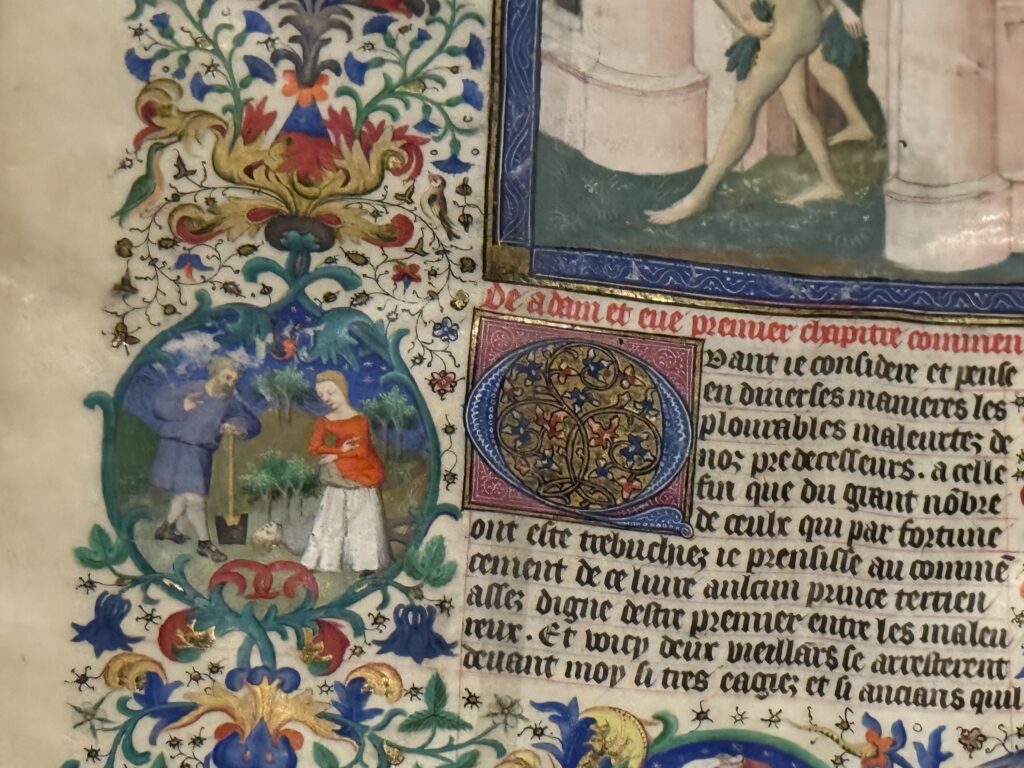 De adam et eue premier chapitre commen
Quant ie considere et pense
en diuerses manieres les
plourables maleurtez de
noz predecesseurs. a celle
fin que du grant nõbre
de ceulx qui par fortune
ont este trebuchiez ie prensisse au commẽ
cement de ce liure aulcun prince terrien
assez digne destre premier entre les maleu
reux. Et voicy deux vieillars se arresterent
deuant moy si tres eagiez et si ancians quil